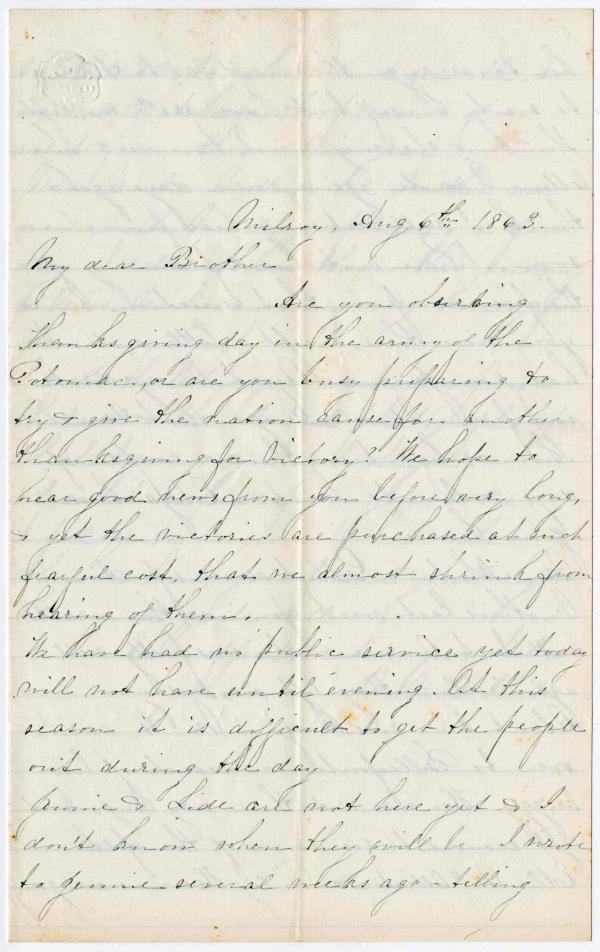 CONGRESS
Milroy, Aug 6th 1863.
My dear Brother
Are you observing
Thanksgiving day in the army of the
Potomac, or are you busy preparing to
try & give the nation cause for another
thanksgiving for victory? We hope to
hear good news from you before very long,
& yet the victories are purchased at such
fearful cost, that we almost shrink from
hearing of them.
We have had no public service yet today
will not have until evening. At this
season it is difficult to get the people
out during the day
Annie & Lide are not here yet & I
don't know when they will be. I wrote
to Jennie several weeks ago telling